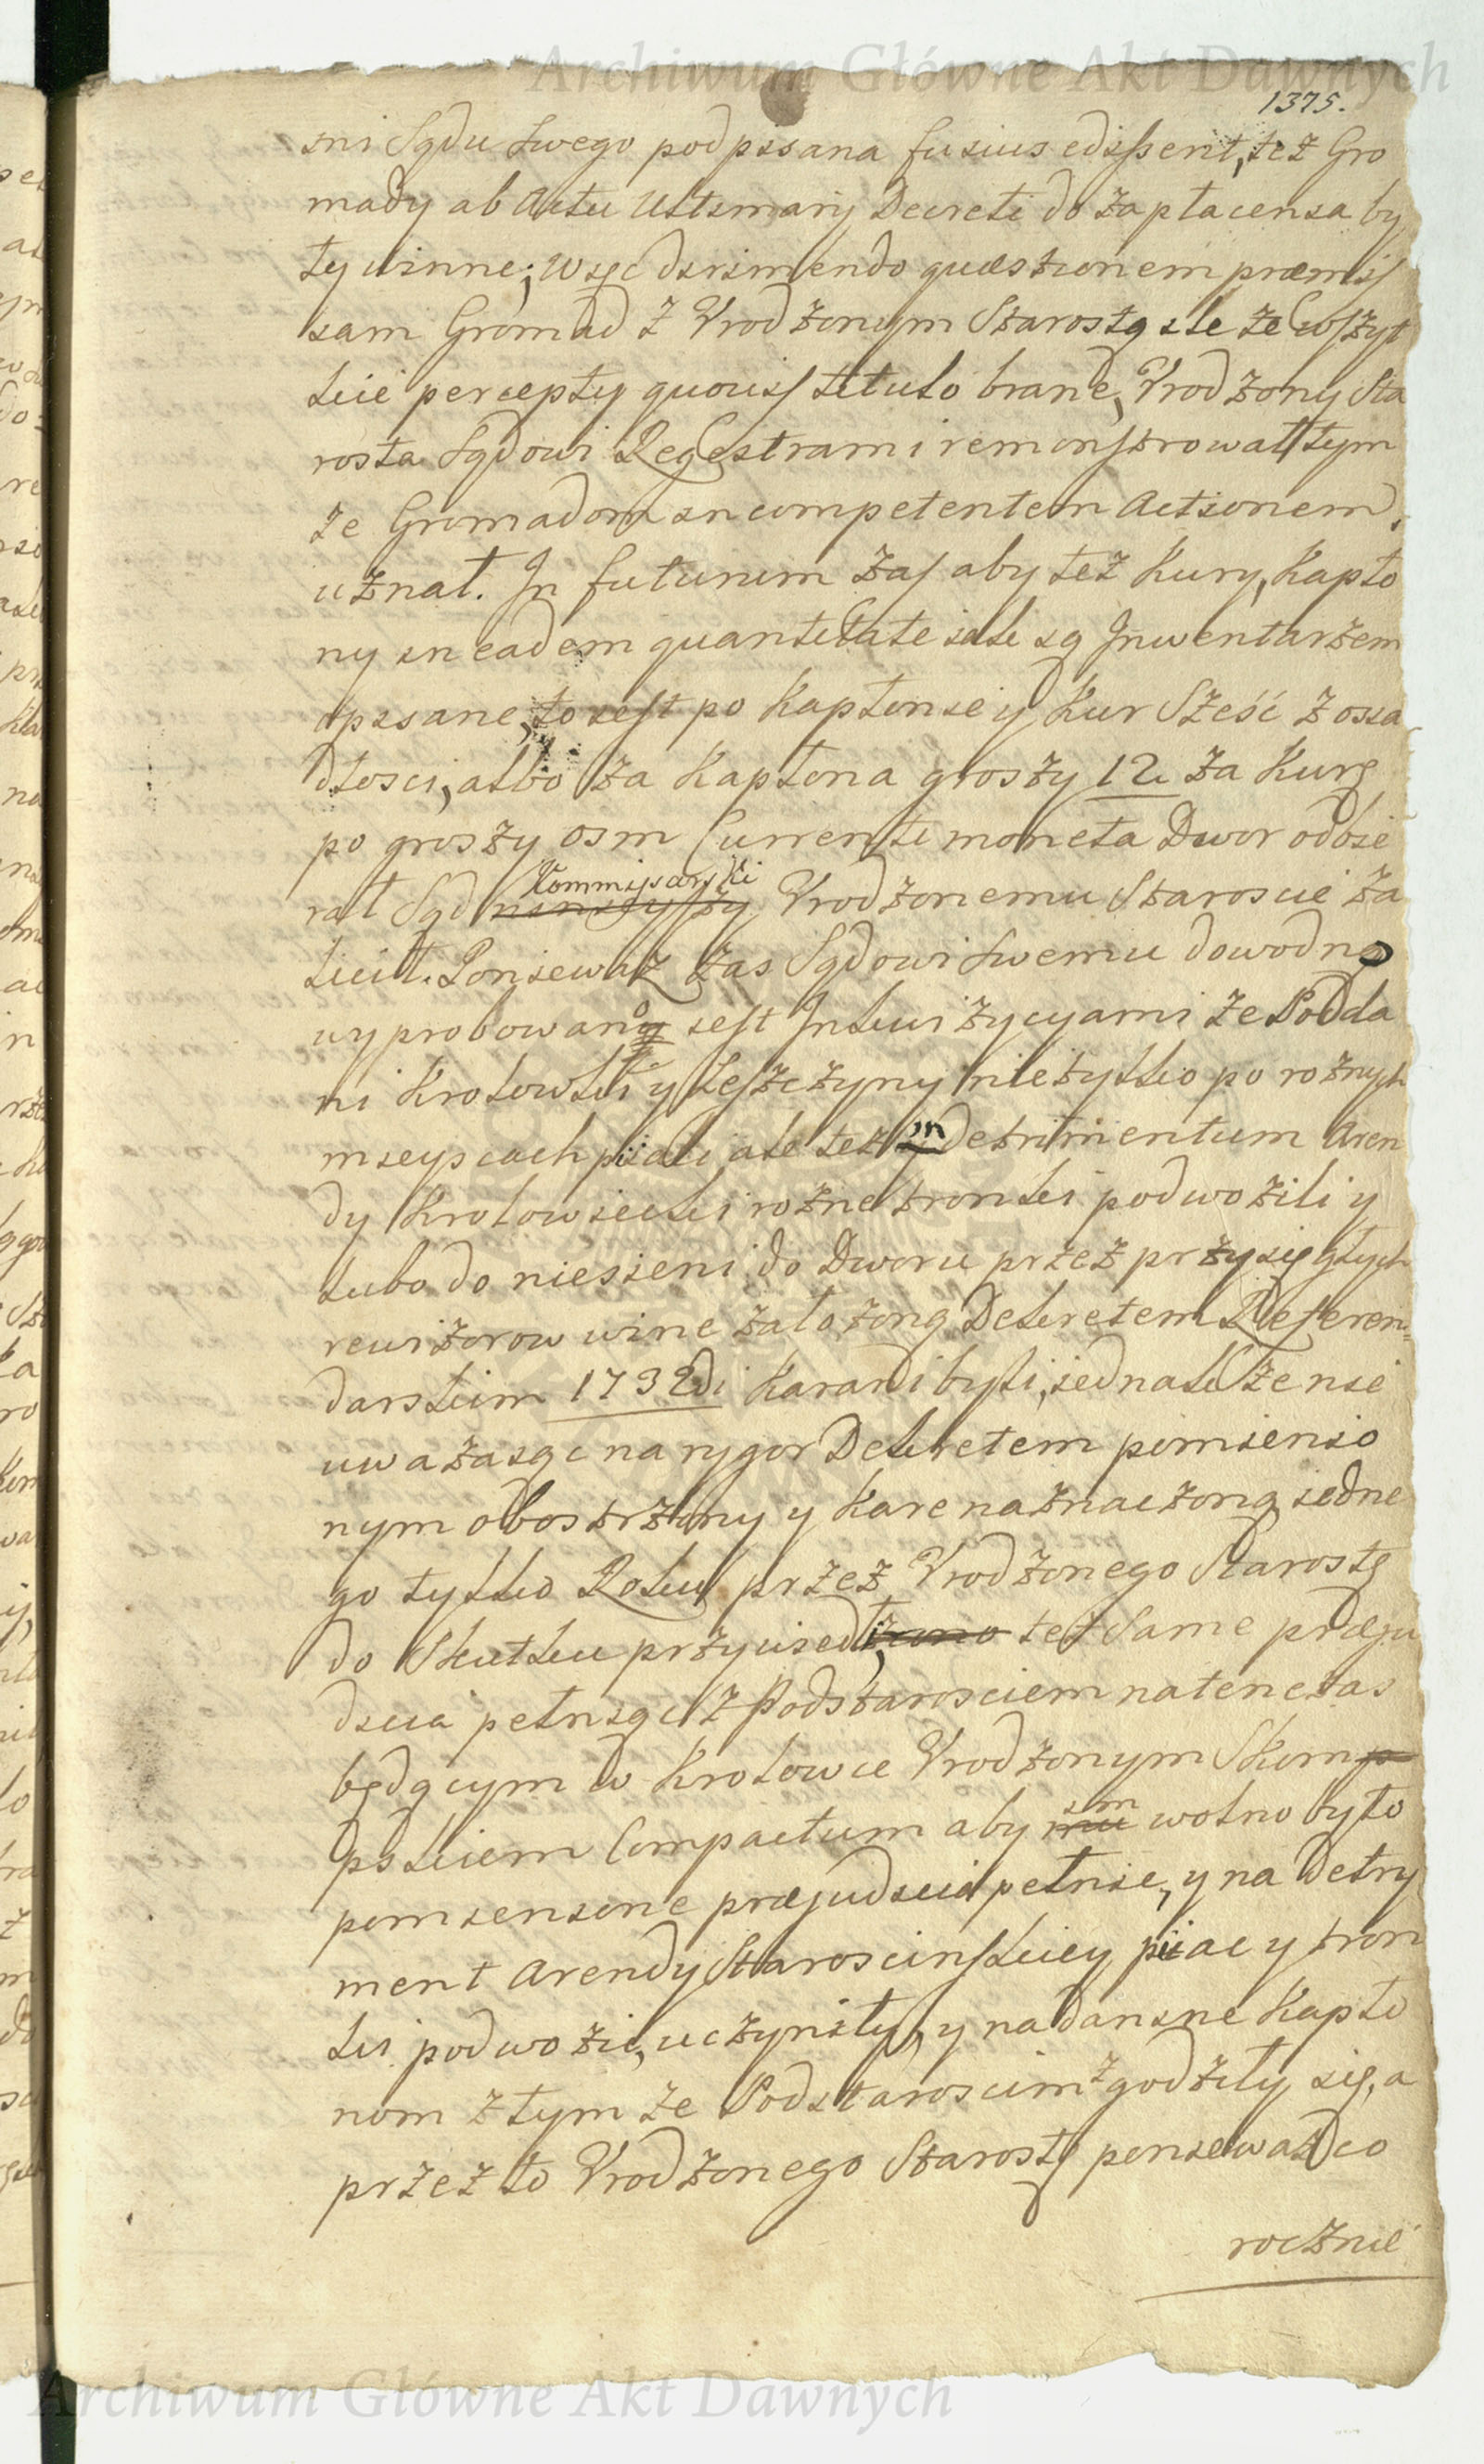 Archiwum Główne Akt Dawnych
1375.
sni Sądu swego podpisana fusius edisserit, też Gro
mady ab Actu Ultimarij Decreti do zapłacenia by
ły winne; Więc dirimendo quæstionem præmis
sam Gromad z Urodzonym Starostą ile że wszyt
kie percepty quovis titulo brane, Urodzony Sta
rosta Sądowi Regestrami remonstrował tym
że Gromadom incompetentem Actionem
uznał. In futurum zaś aby też Kury, Kapło
ny in eadem quantitate iak są Inwentarzem
opisane, to iest po Kapłonie y Kur Sześć z osia
dłosci, albo za Kapłona groszy 12. za Kurę
po groszy osm Currenti moneta Dwor odbie
rał Sąd Kommissarski Urodzonemu Staroscie za
lecił. Poniewaz zas Sądowi swemu dowodno
wyprobowano iest Inkwizycyami że Podda
ni Krolowki y Leszczyny nie tylko po roznych
mieyscach pijali ale też in detrimentum Aren
dy Krolowiecki rożne tronki podwozili y
lubo do niesieni do Dworu przez przysięgłych
rewizorow winę założoną Dekretem Referen-
darskim 1732di karani byli, iednak że nie
uwazaiąc na rygor Dekretem pomienio
nym obostrzony y karę naznaczoną iedne
go tylko Roku przez Urodzonego Starostę
do Skutku przywiedł, też same præju
dicia pełniąc z Podstarosciem na ten czas
będącym w Krolowce Urodzonym Skom
pskiem Compactum aby im wolno było
pomienione præjudicia pełnic, y na detry
ment Arendy Staroscinskiey pijac y tron
ki podwozic, uczyniły, y na danine Kapło
nom z tym że Podstaroscim zgodziły się, a
przez to Urodzonego Starostę poniewaz co
rocznie
Archiwum Główne Akt Dawnych